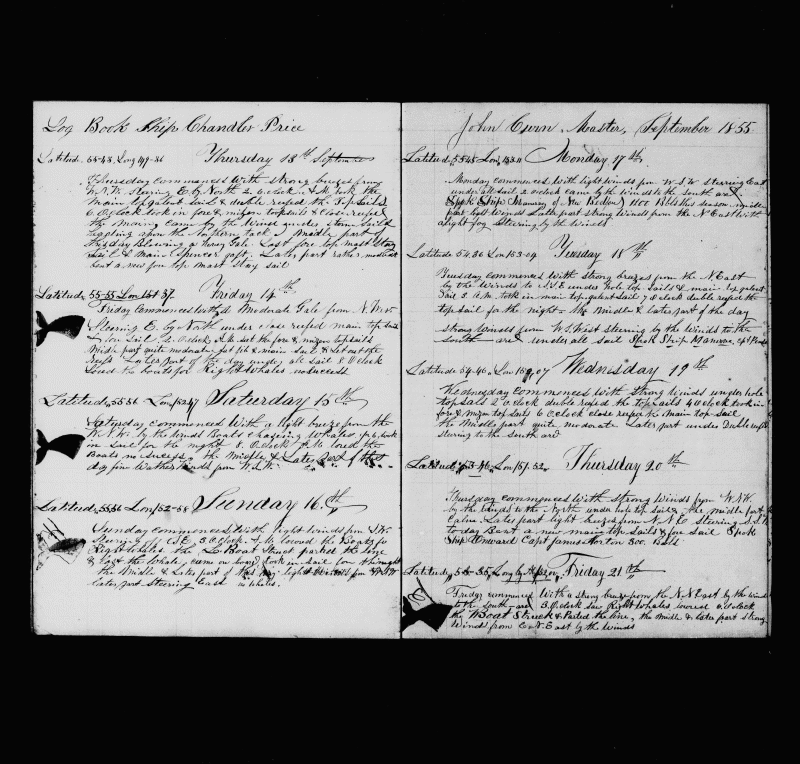 Log Book Ship Chandler Price
Thursday 13th September
Thursday commences With strong breezes from
W.N.W. Stearing E by North 2 oclock A.M. took the
main topgalent sail & duble reefed the Top Sails
6 Oclock took in fore & mizen topsails & Close reefed
the main
upon the Northern tack Middle part of
this day Blowing a heavy Gale. Lost fore top mast Stay
Sail & Main Spencer gaft. Later part rather moderate
bent a new fore top mast Stay sail
Latitude 55-55 Lon 151 37. Friday 14th
Friday commences with a Moderate Gale from N.W.
Stearing E. by North under close reefed main top sail
& fore Sail 2 Oclock A.M. set the fore & mizon topsails
Midle part quite moderately set jib & main sail & let out the
reefs Later part of the day under all sail 8 Oclock
Lowd the boats for Right Whales no success
Latitude 55 56 Lon 152 47 Saturday 15th
Saturday commences With a light breeze from the
W.N.W. by the Winds Boats Chaseing Whales took
in Sail for the night 8 Oclock A.M. lowed the
Boats no success the Midle & Later Part of this
day fine Wather Winds from W.S.W.
Latitude 55 56 Lon 152-58 Sunday 16th
Sunday commences With light winds from S.W.
Steering E.S.E. 5 Oclock A.M. lowed the Boats for
Right whales the La Boat Struck parted the line
& lost the Whale, came on board took in sail for the night
the Midle & Later part of this day light Winds from
later part Steering East no Whales.
John Cwen Master, September 1855
Monday 17th
Monday commences With light winds from W.S.W Steering East
under all sail 2 oclock came by the winds to the south ard
Spok Ship of New Bedford 1100 Bbls this season midle
part light Winds Later part strong Winds from the N East with
a light fog Steering by the Winds
Latitude 54 36 Lon 153-04 Tuesday 18th
Tuesday commences With strong breezes from the N East
by the Winds to S.S.E under hole top Sails & main topgalent
Sail 5 A.M. took in main top galent Sail 7 Oclock duble reefed the
top sail for the night the Middle & Later part of the day
strong Winds from W.S. West Steering by the Winds to the
south ard under all sail Spok Ship
Wednesday 19th
Wednesday commences With strong Winds under hole
topsails 2 oclock duble reefed the topsails 4 Oclock took in
fore & mizon top sails 6 Oclock close reefed the Main top sail
the Middle part quite modrate Later part under Duble reefs
stering to the south ard
Thursday 20th
Thursday commences With strong Winds from W.N.W.
by the Winds to the North under hole top Sails, the midle part
Calm. Later part light breezes from N.N.E Steering S.S.E
to day Bent a new main top sails & fore Sail Spok
Ship Edward Capt James Horton 300 Bbls
Friday 21th
Friday commences With a strong breeze from the N.N East by the winds
to the south-ard 5 Oclock saw Right Whales lowed 6 Oclock
the Boat Struck & Parted the line, the midle & later part strong
Winds from E.N. East by the Winds